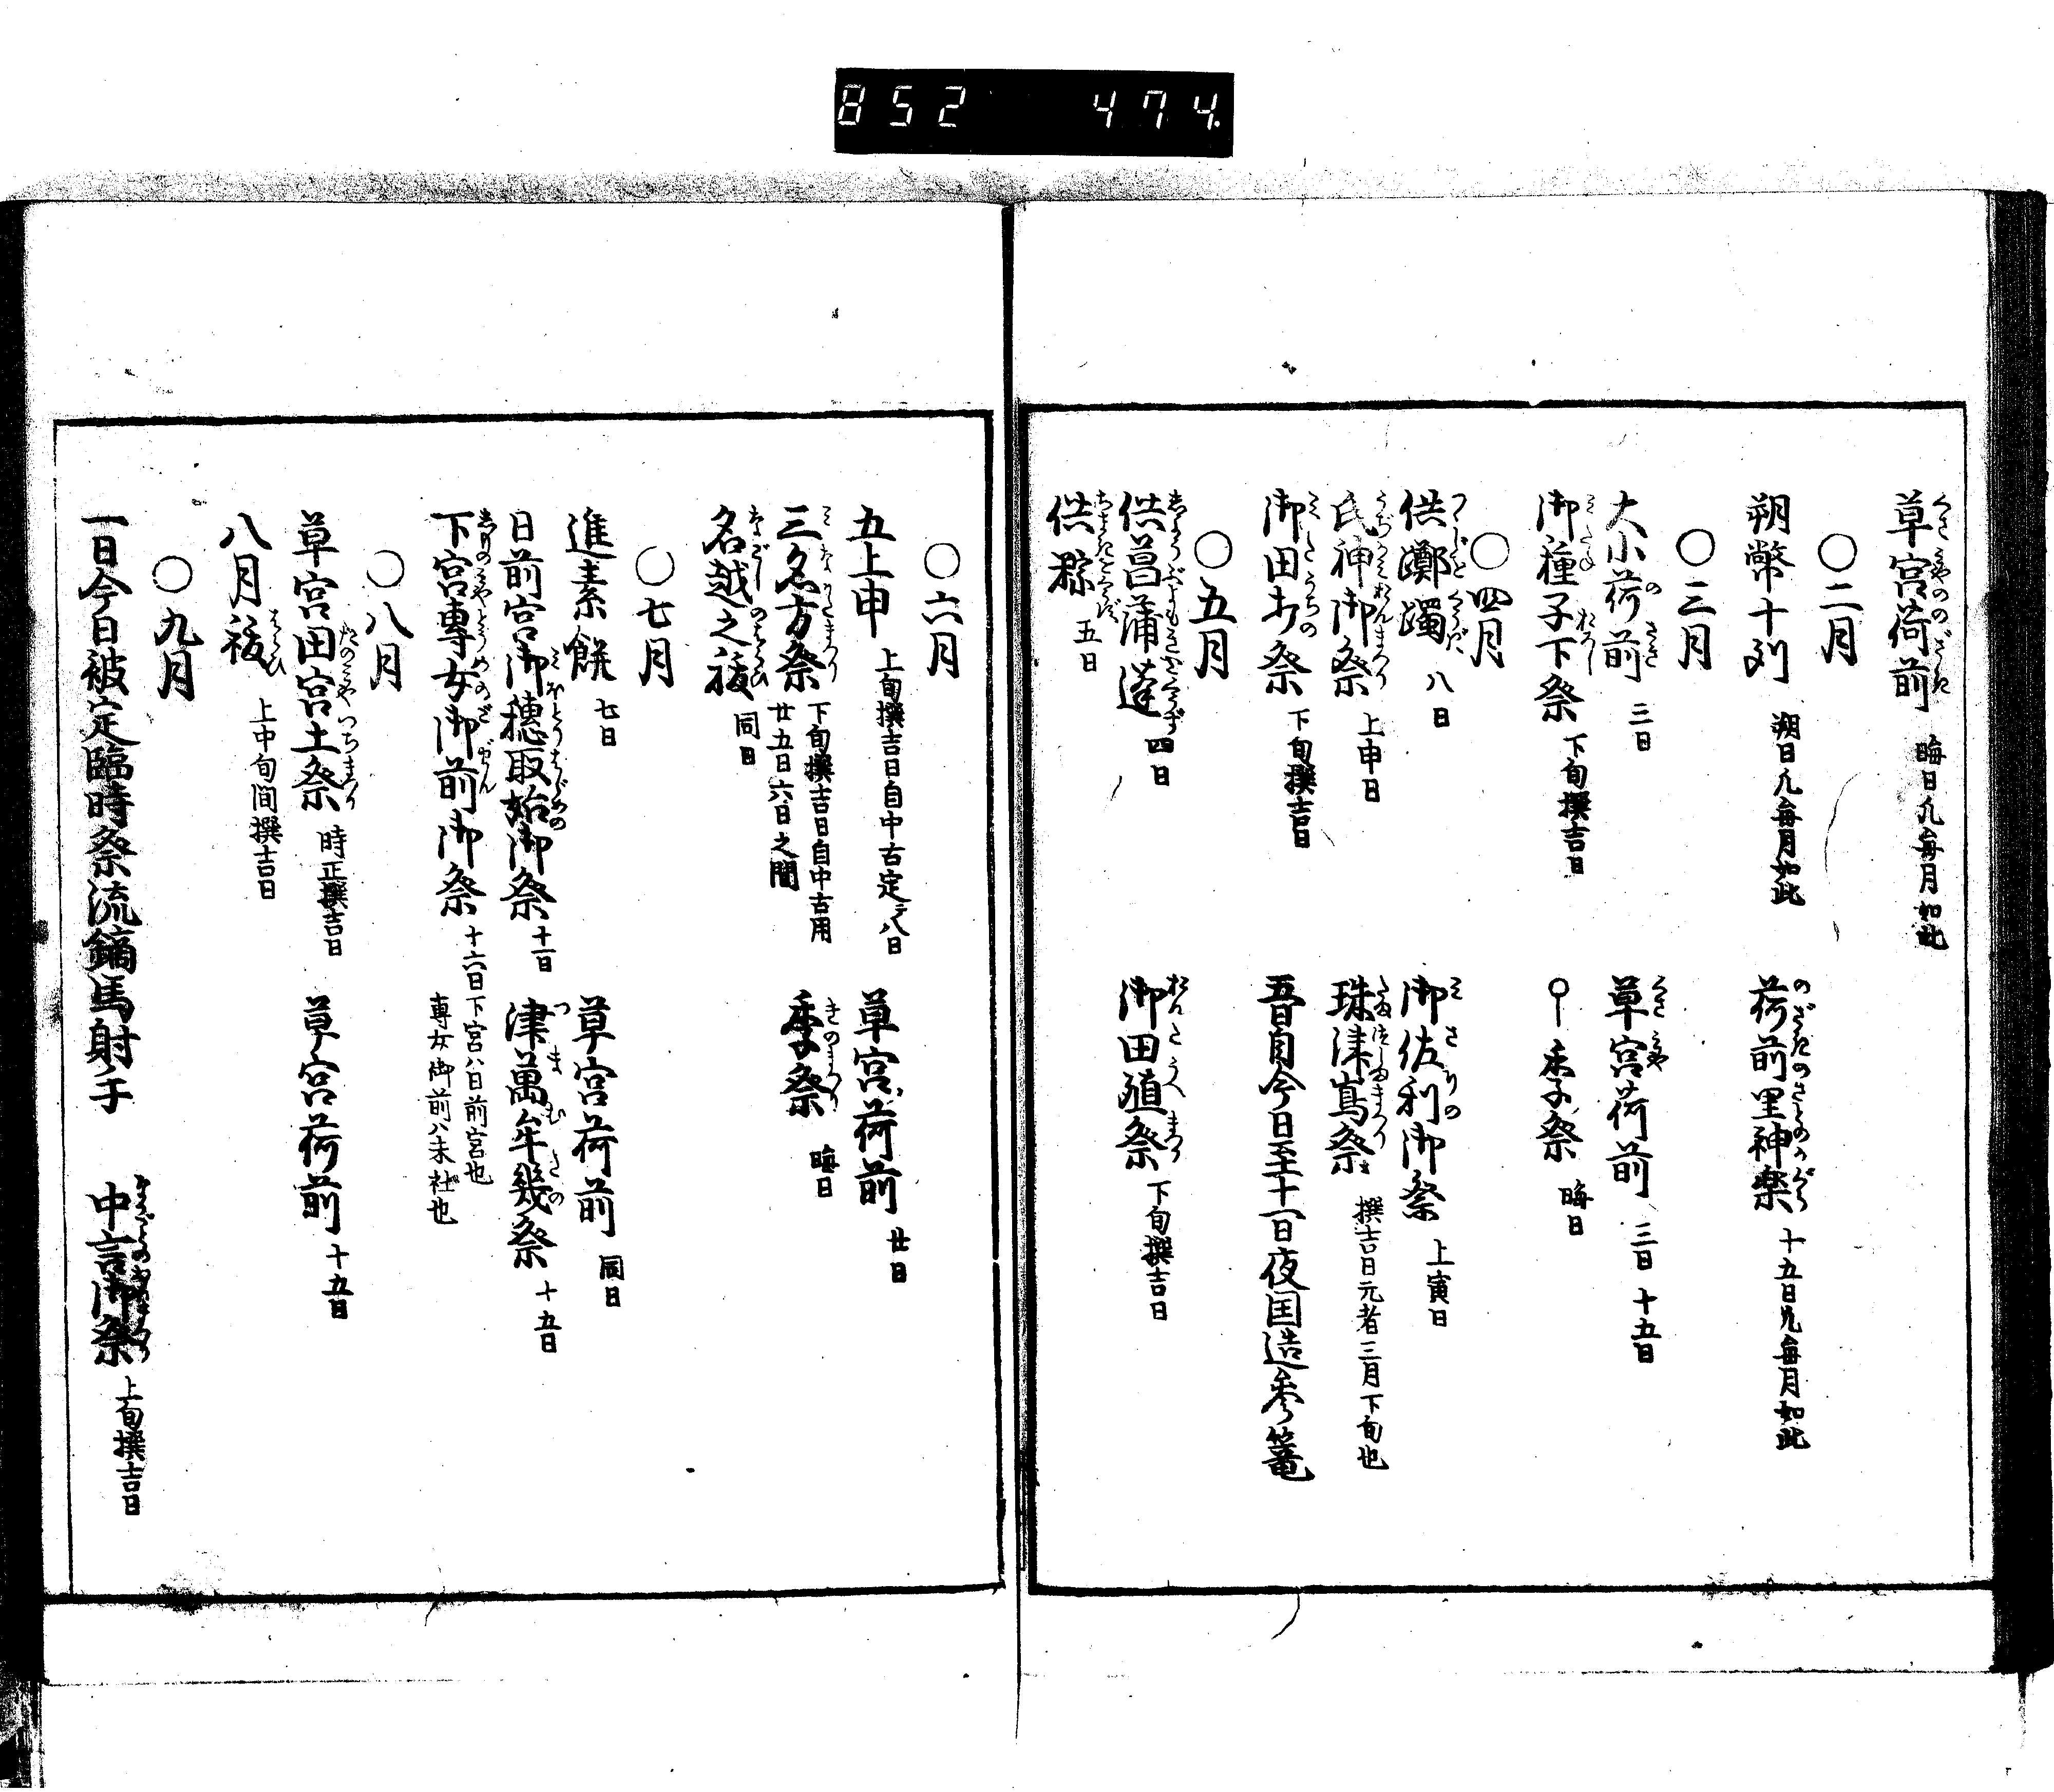 852 474
草宮荷前 晦日凡毎月如此
〇二月
朔幣十列 朔日凡毎月如此 荷前里神楽 十五日凡毎月如此
〇三月
大小荷前 三日 草宮荷前 三日 十五日
御種子下祭 下旬撰吉日 季祭 晦日
〇四月
供躑躅 八日 御佐利御祭 上寅日
氏神御祭 上申日 珠津嶌祭 撰吉日元者三月下旬也
御田打祭 下旬撰吉日 今日至十一日夜国造参篭
〇五月
供菖蒲蓬 四日 御田殖祭 下旬撰吉日
供粽 五日
〇六月
五上申 上旬撰吉日自中古定二八日 草宮荷前 廿日
三名方祭 下旬撰吉日自中古用廿五日六日之間 季祭 晦日
名越之祓 同日
〇七月
進素餅 七日 草宮荷前 同日
日前宮御穂取始御祭 十一日 津萬牟幾祭 十五日
下宮專女御前御祭 十六日下宮ハ日前宮也專女御前ハ末社也
〇八月
草宮田宮土祭 時正撰吉日 草宮荷前 十五日
八月祓 上中旬間撰吉日
〇九月
一日今日被定臨時祭流鏑馬射手 中言御祭 上旬撰吉日